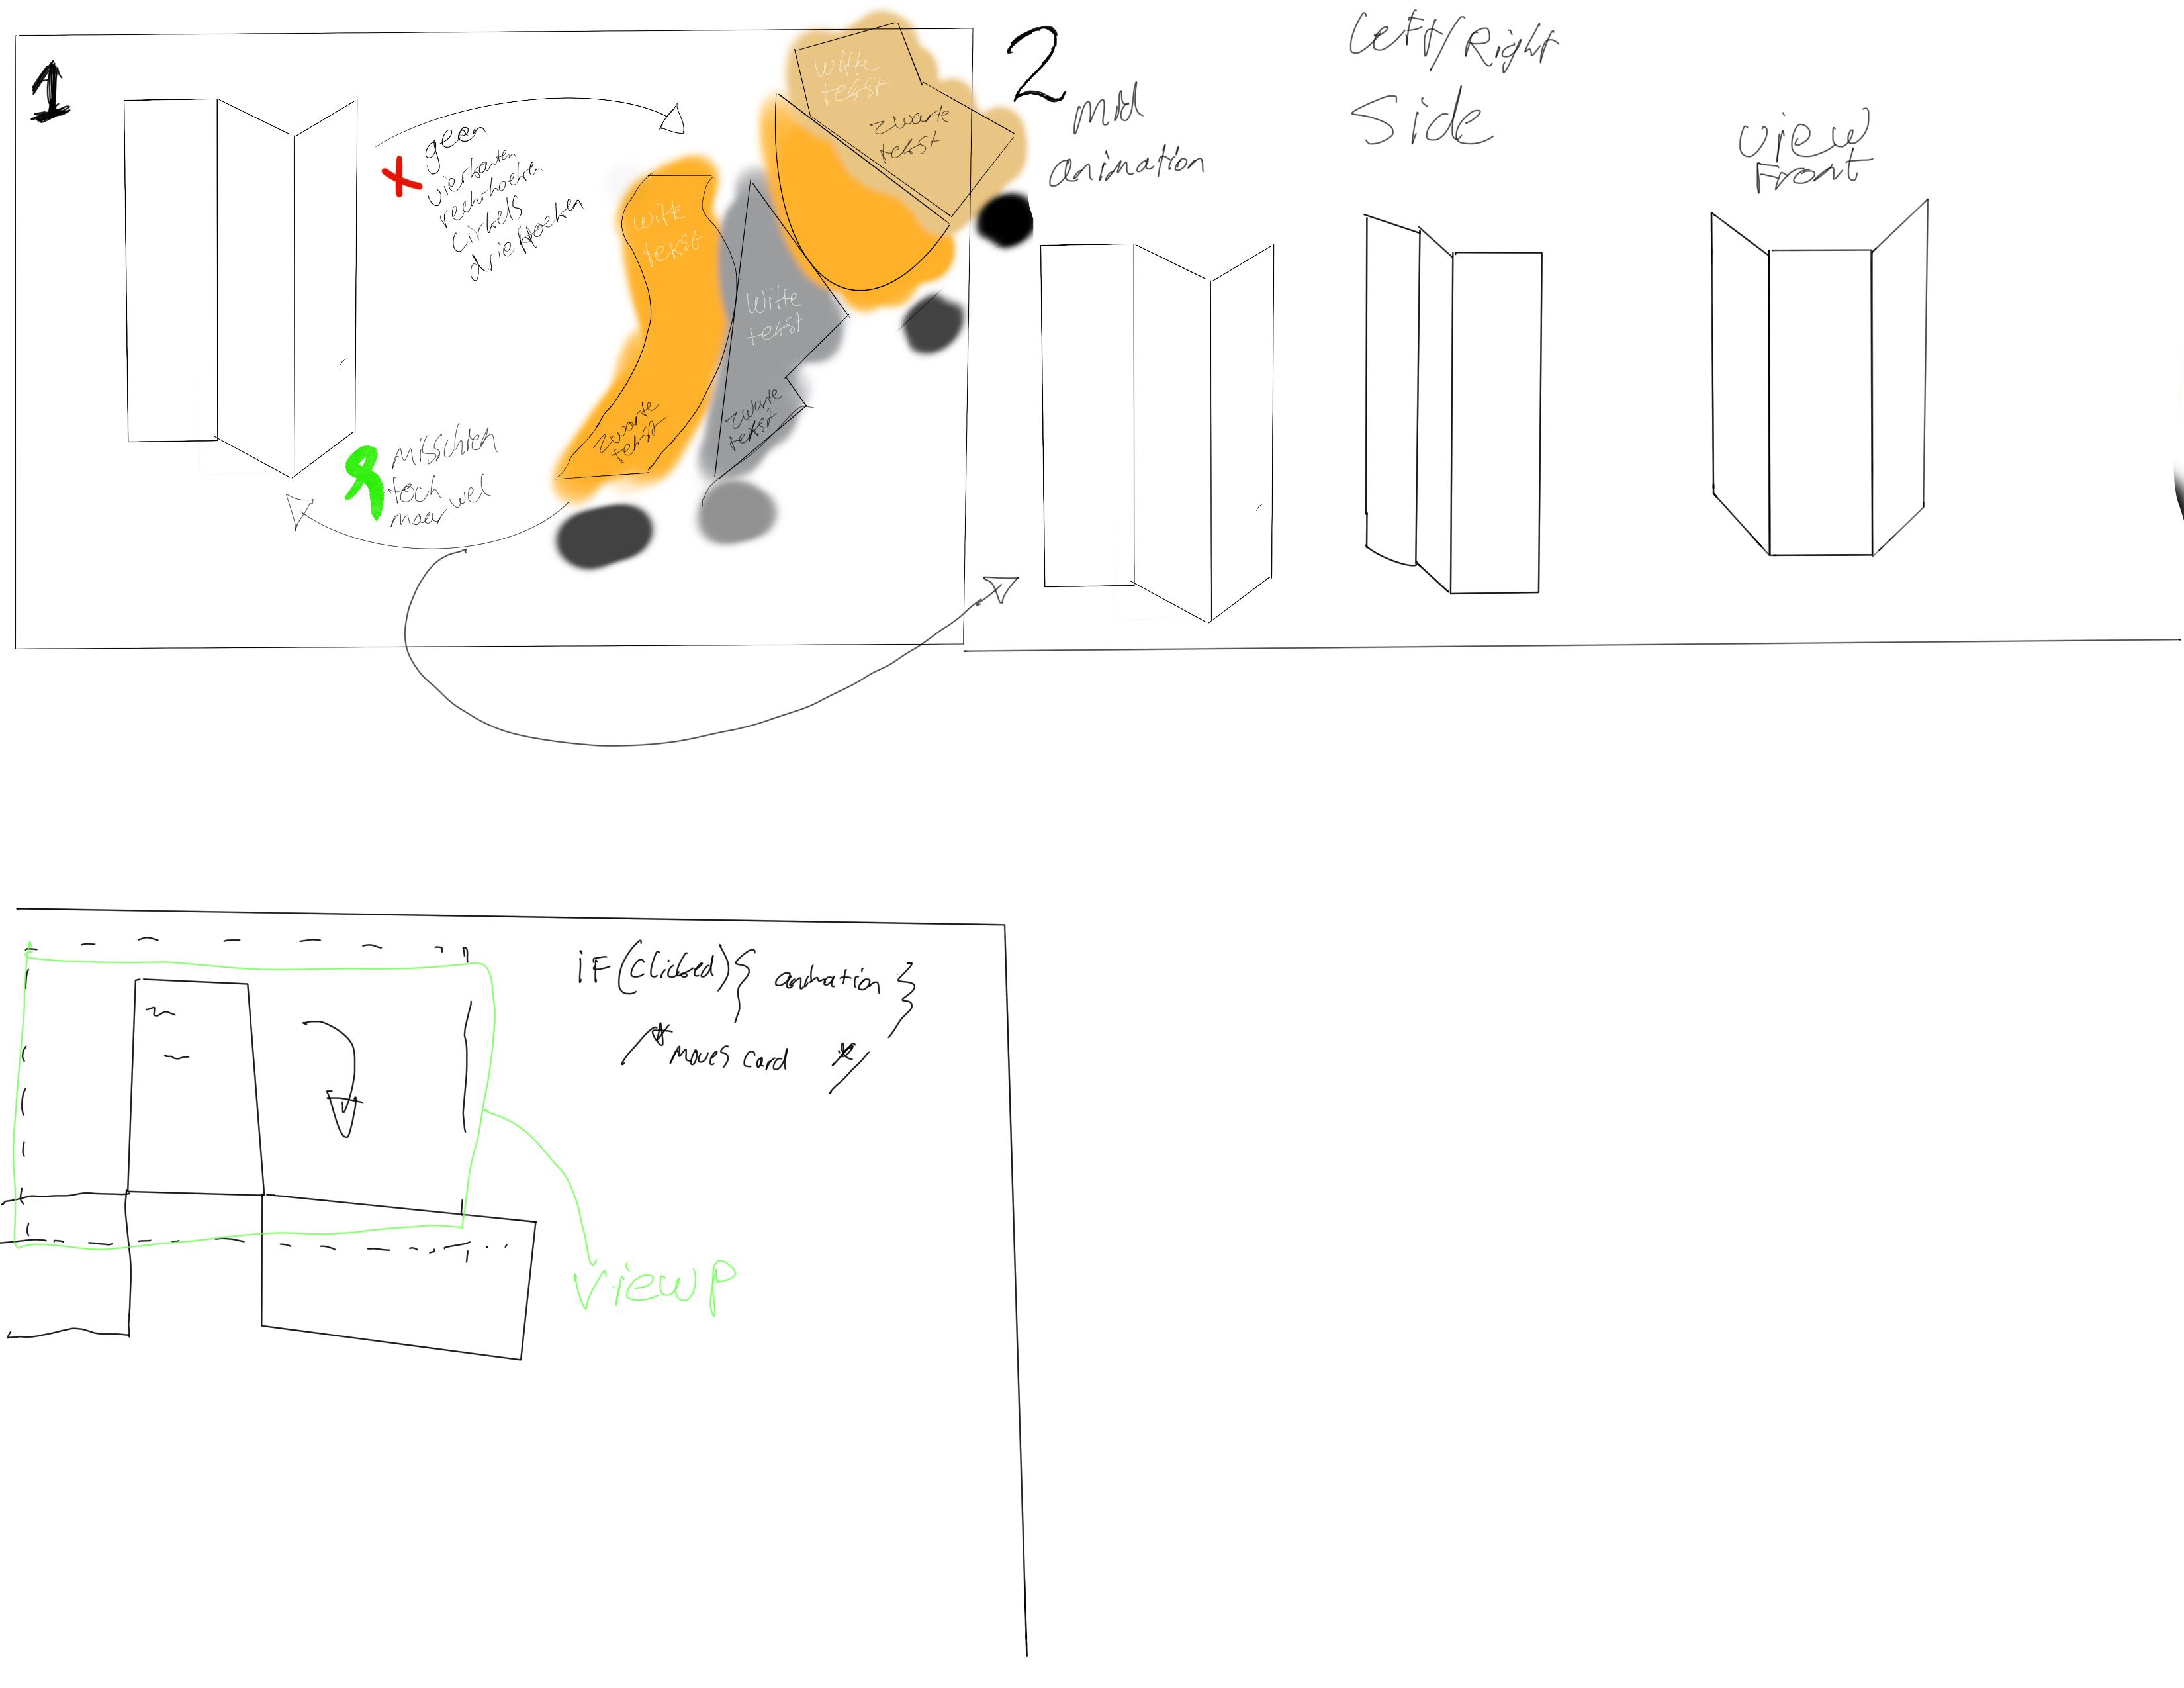 1
geen
vierkanten
rechthoeken
cirkels
driehoeken
misschien
toch wel
maar
witte
tekst
zwarte
tekst
witte
tekst
zwarte
tekst
witte
tekst
zwarte
tekst
2
mid
animation
Left/Right
Side
view
Front
if(clicked){ animation }
/* moves card */
viewp